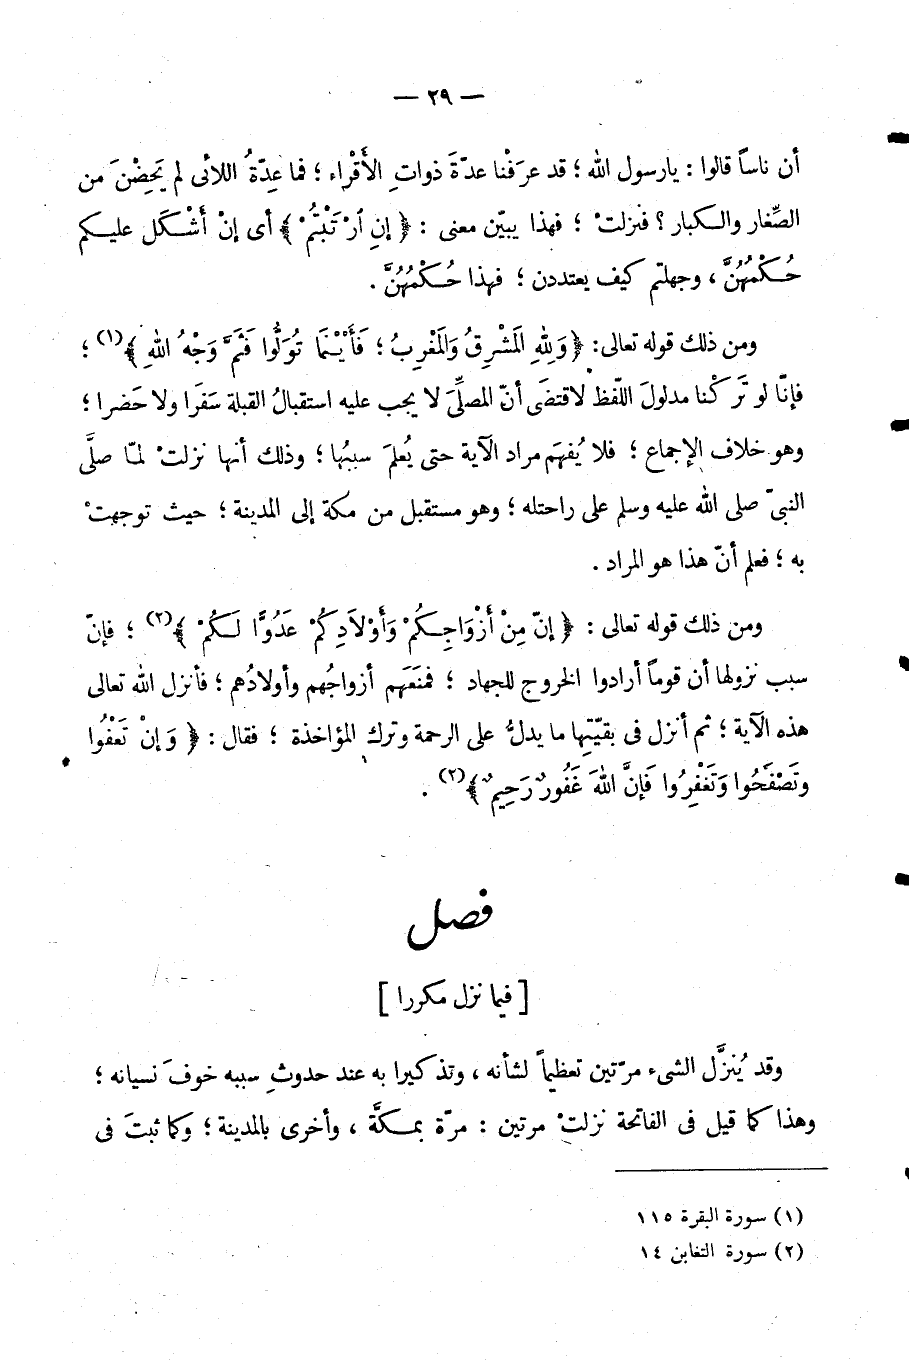 — ٢٩ —
أن ناساً قالوا : يارسول الله ؛ قد عرَفْنا عدّةَ ذواتِ الأَقْراء ؛ فما عِدّةُ اللائى لم يَحِضْنَ من
الصِّغار والكبار ؟ فنزلتْ ؛ فهذا يبيّن معنى : ﴿ إنِ ٱرْتَبْتُمْ ﴾ أى إنْ أَشْكَل عليكم
حُكْمُهُنَّ ، وجهلتم كيف يعتددن ؛ فهذا حُكْمُهُنَّ .
ومن ذلك قوله تعالى: ﴿ وَلِلهِ الْمَشْرِقُ وَالْمَغْرِبُ ؛ فَأَيْنَمَا تُوَلُّوا فَثَمَّ وَجْهُ اللهِ ﴾(١) ؛
فإنّا لو تَركْنا مدلولَ اللّفظ لاقتضَى أنّ المصلِّىَ لا يجب عليه استقبالُ القبلة سَفَرا ولا حَضرا ؛
وهو خلاف الإجماع ؛ فلا يُفهَم مراد الآية حتى يُعلمَ سببُها ؛ وذلك أنها نزلتْ لمّا صلَّى
النبىّ صلى الله عليه وسلم على راحلته ؛ وهو مستقبل من مكة إلى المدينة ؛ حيث توجهتْ
به ؛ فعلم أنّ هذا هو المراد .
ومن ذلك قوله تعالى : ﴿ إنّ مِنْ أَزْوَاجِكُمْ وَأَوْلَادِكُمْ عَدُوًّا لَكُمْ ﴾(٢) ؛ فإنّ
سبب نزولها أن قوماً أرادوا الخروج للجهاد ؛ فمنَعَهم أزواجُهم وأولادُهم ؛ فأنزل الله تعالى
هذه الآية ؛ ثم أنزل فى بقيّتِها ما يدلُّ على الرحمة وترك المؤاخذة ؛ فقال : ﴿ وَإنْ تَعْفُوا
وتَصْفَحُوا وَتَغْفِرُوا فَإنَّ اللهَ غَفُورٌ رَحِيمٌ ﴾(٢) .
فصل
[ فيما نزل مكررا ]
وقد يُنَزَّل الشىء مرّتين تعظيماً لشأنه ، وتذكيرا به عند حدوثِ سببه خوفَ نسيانه ؛
وهذا كما قيل فى الفاتحة نزلتْ مرتين : مرّة بمكَّة ، وأخرى بالمدينة ؛ وكما ثبتَ فى
(١) سورة البقرة ١١٥
(٢) سورة التغابن ١٤